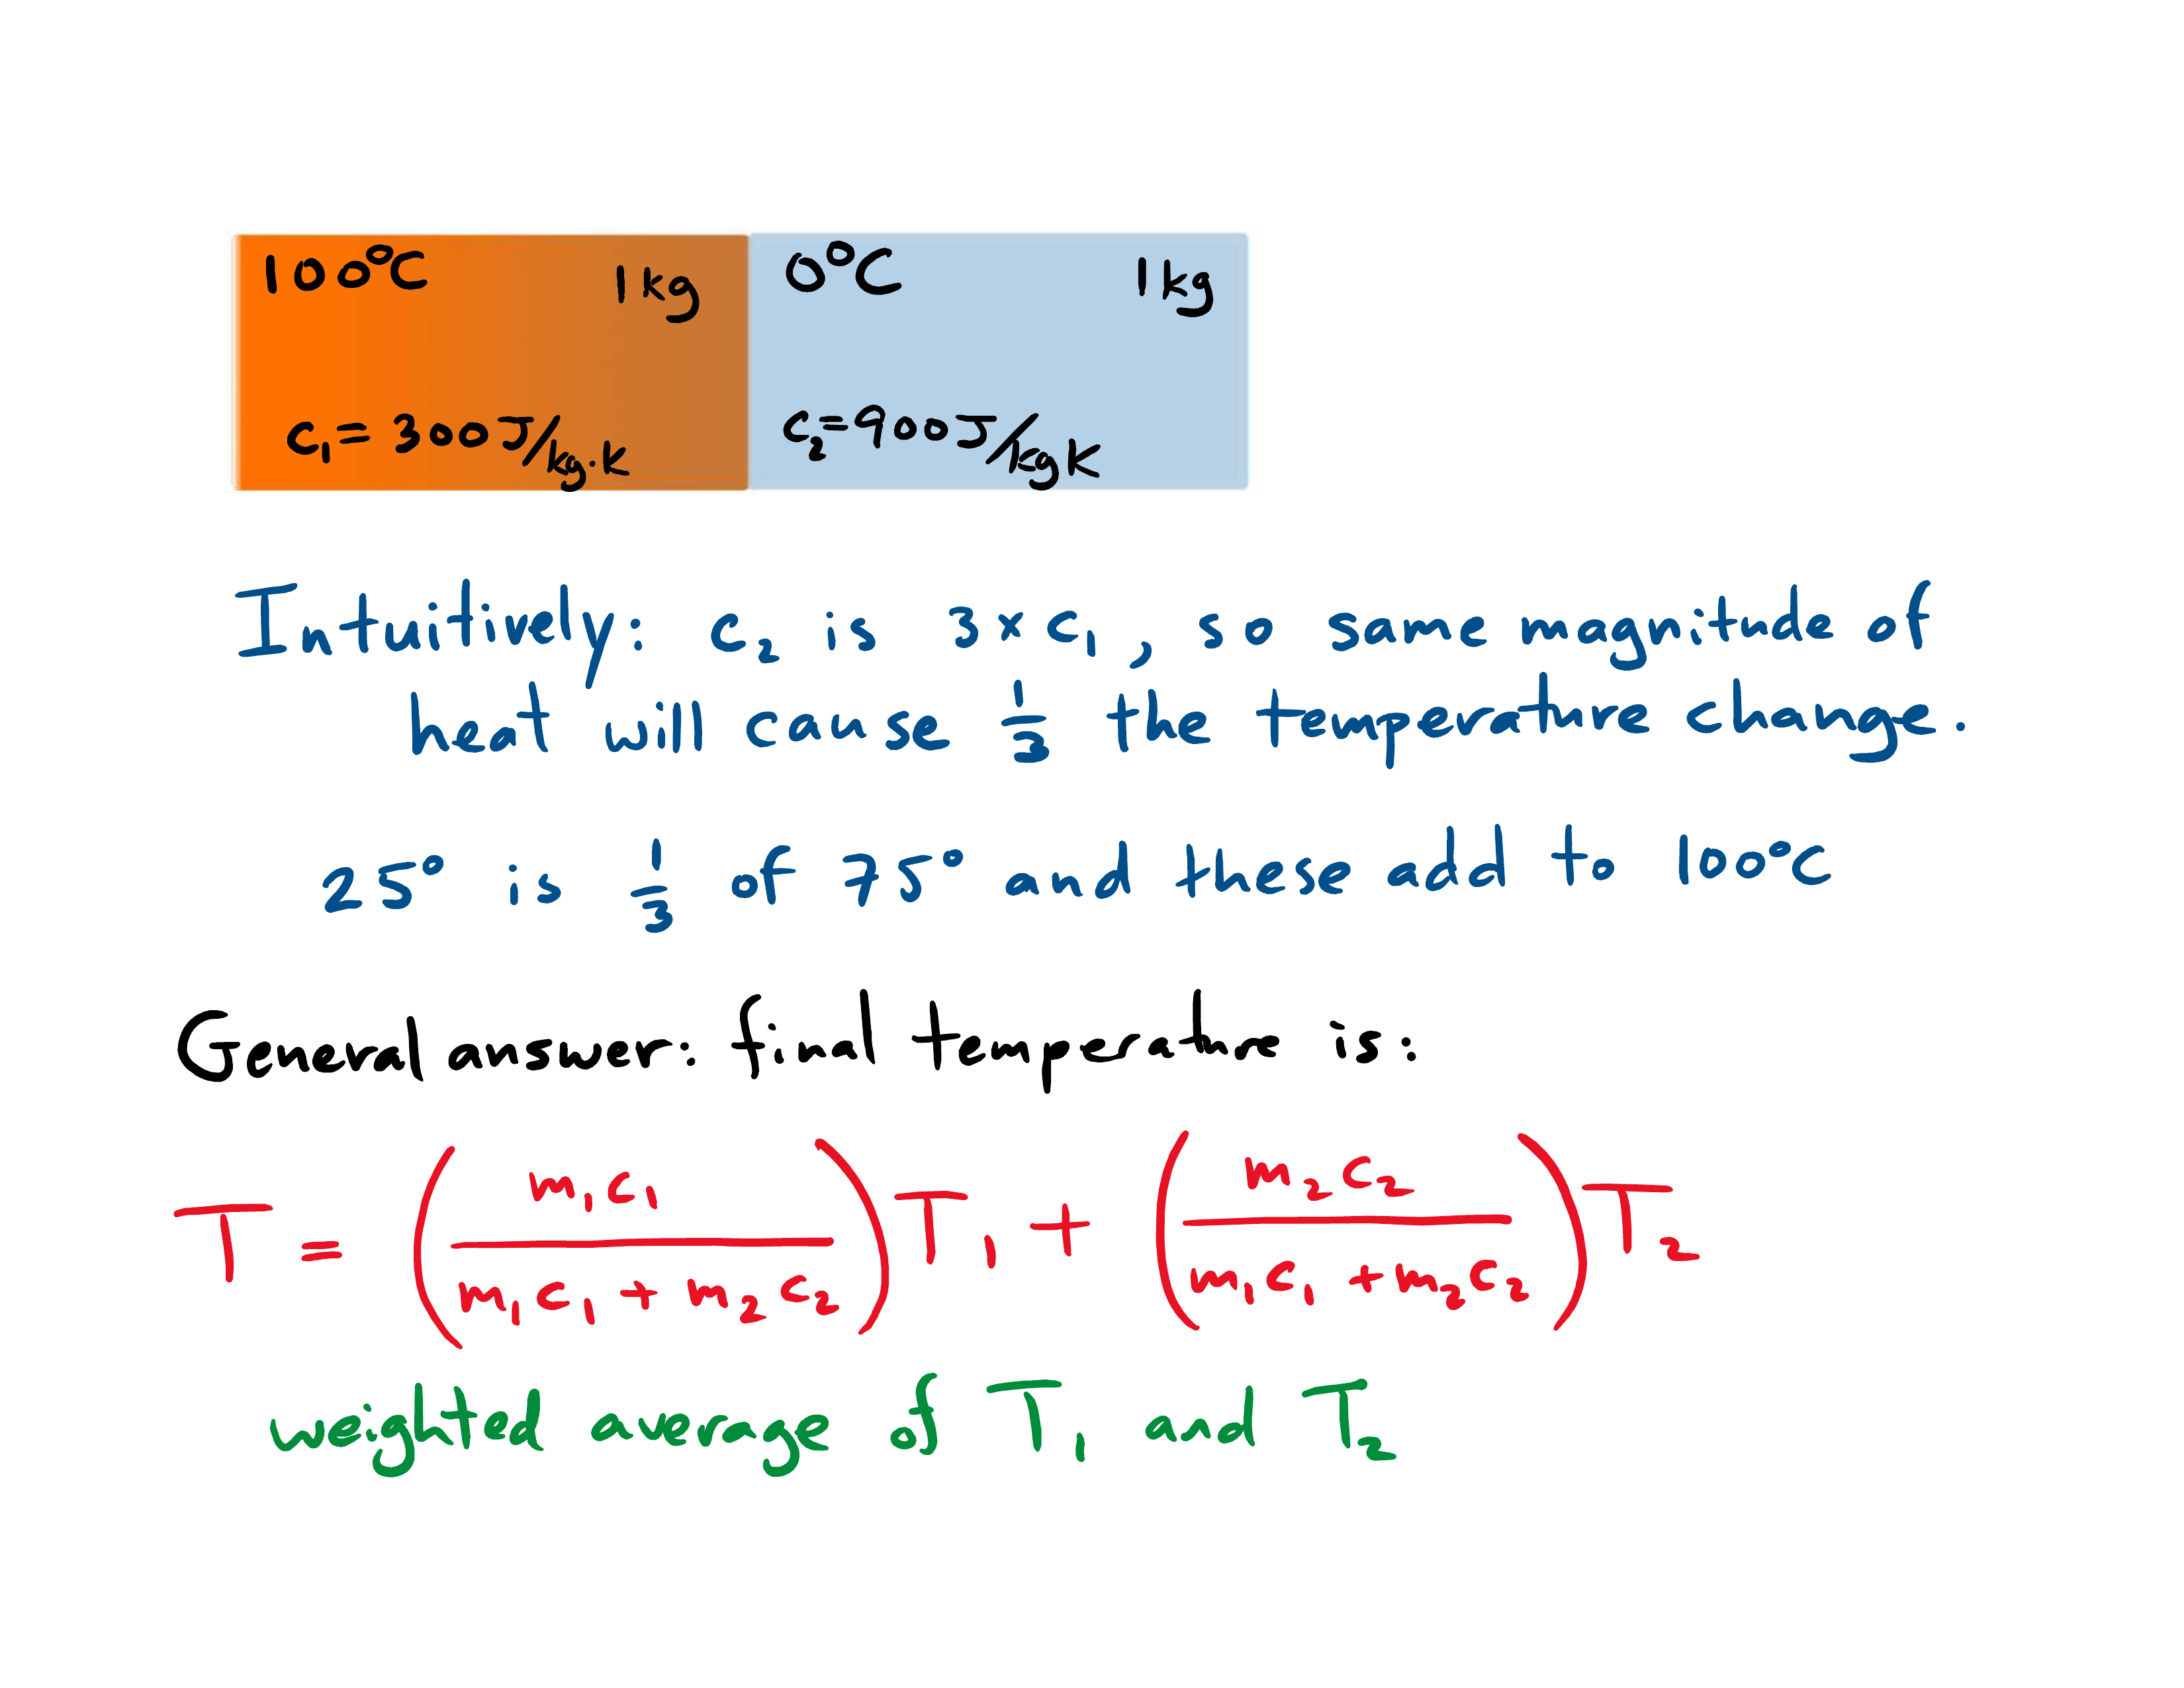 100°C 1kg 0°C 1kg
c₁ = 300 J/kg·K c₂ = 900 J/kg K
Intuitively: c₂ is 3 x c₁, so same magnitude of
heat will cause 1/3 the temperature change.
25° is 1/3 of 75° and these add to 100°C
General answer: final temperature is:
T = (m₁c₁ / m₁c₁ + m₂c₂) T₁ + (m₂c₂ / m₁c₁ + m₂c₂) T₂
weighted average of T₁ and T₂